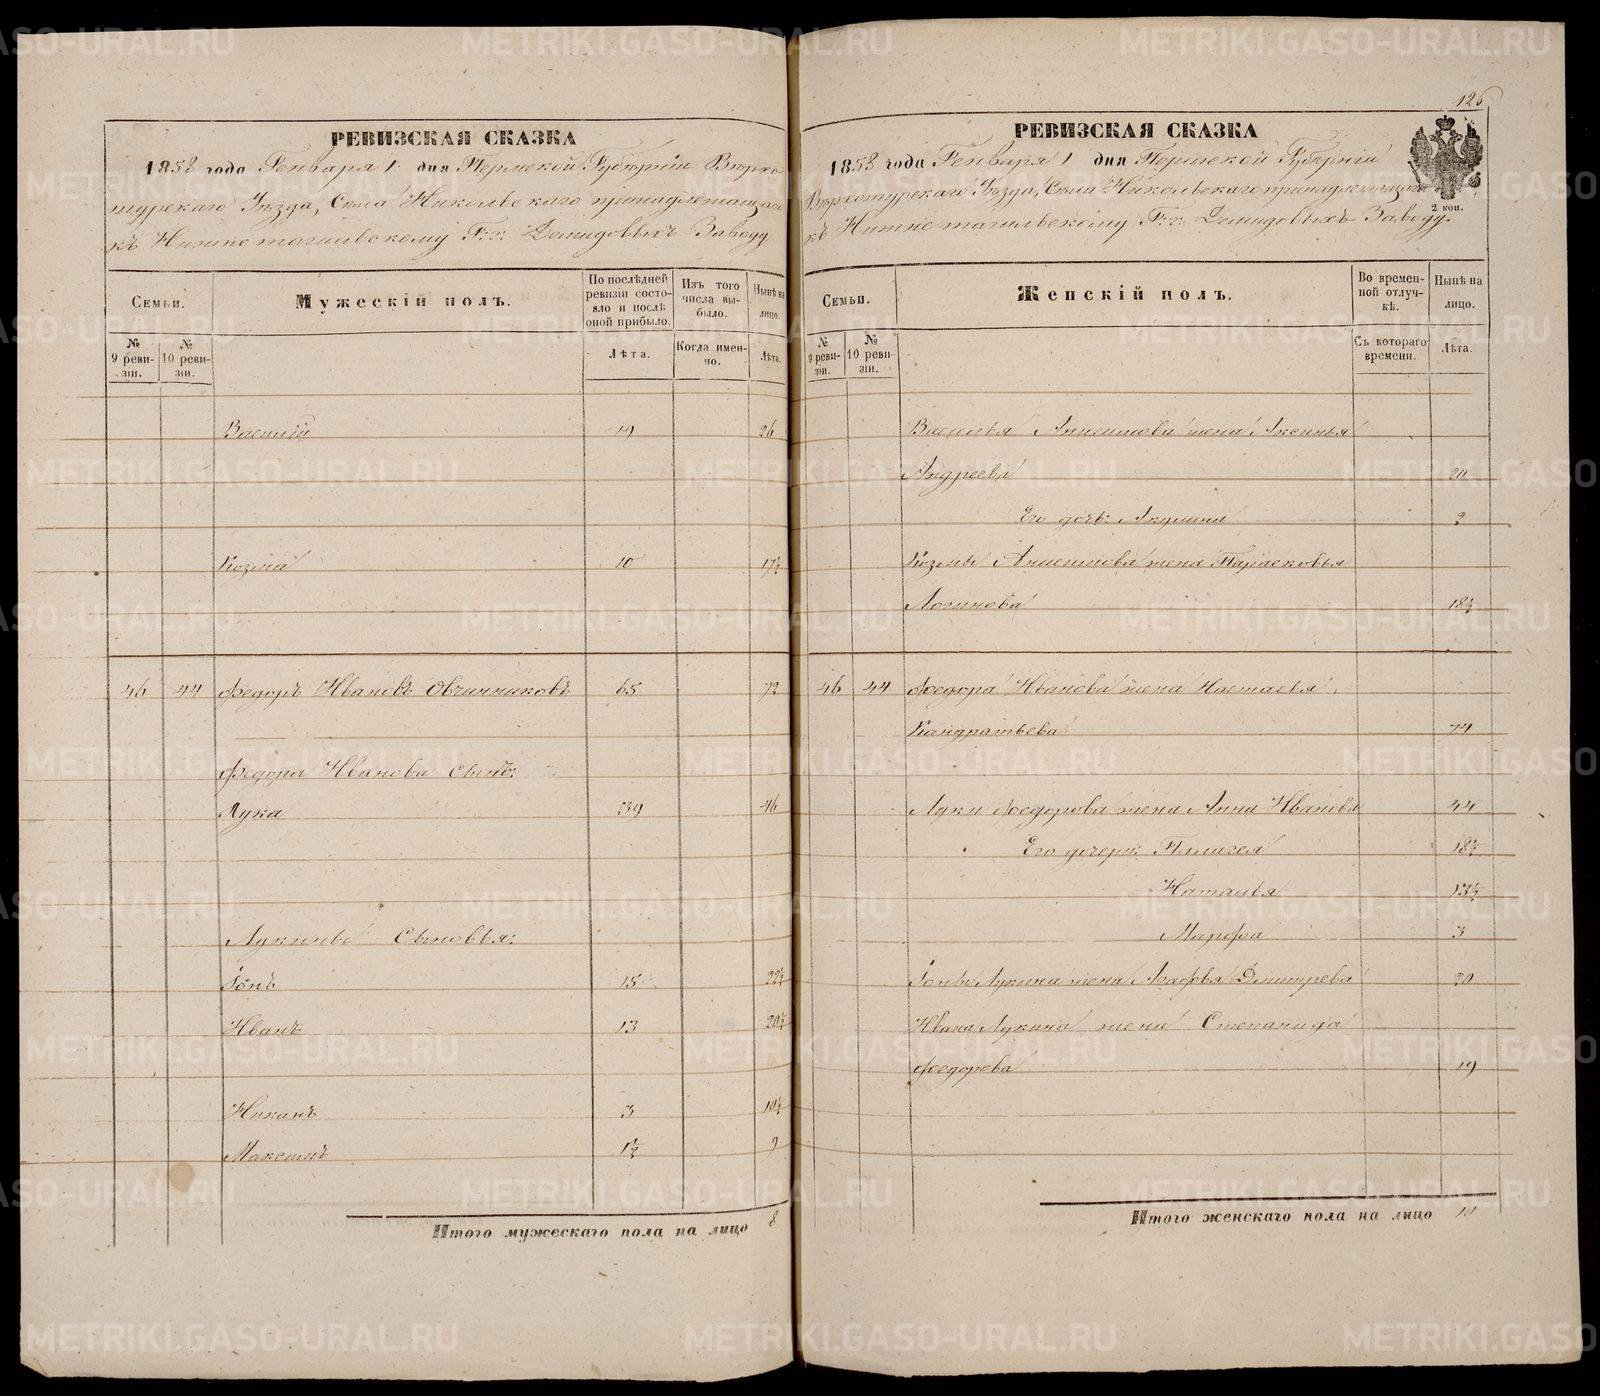 РЕВИЗСКАЯ СКАЗКА
1858 года Генваря 1 дня Пермской Губерніи Верхо
турскаго Уѣзда, Села Никольскаго принадлежащаго
къ Нижнетагильскому Г.г. Демидовыхъ Заводу
Семьи.
Мужескій полъ.
По послѣдней ревизіи состояло и послѣ оной прибыло.
Изъ того числа выбыло.
Нынѣ на лицо.
№ 9 ревизіи.
№ 10 ревизіи.
Лѣта.
Когда именно.
Лѣта.
Василій 19 26
Козма 10 17½
46 44 Федоръ Ивановъ Овчинниковъ 65 72
Федора Иванова Сынъ:
Лука 39 46
Лукины Сыновья:
Іонъ 15 22½
Иванъ 13 20½
3 10½
Максимъ 1½ 9
Итого мужескаго пола на лицо 8
126
РЕВИЗСКАЯ СКАЗКА
1858 года Генваря 1 дня Пермской Губерніи
Верхотурскаго Уѣзда, Села Никольскаго принадлежащаго
къ Нижнетагильскому Г.г. Демидовыхъ Заводу.
2 коп.
Семьи.
Женскій полъ.
Во временной отлучкѣ.
Нынѣ на лицо.
№ 9 ревизіи.
№ 10 ревизіи.
Съ котораго времени.
Лѣта.
Василья жена Аксинья
Андреева 20
Его дочь: Акулина 2
Козмы жена Парасковья
Логинова 18½
46 44 Федора Иванова жена Настасья
Кандратьева 74
Луки Федорова жена Анна Иванова 44
Его дочери: Палагея 18½
Наталья 13½
Марфа 3
Іоны Лукина жена Агафья Дмитрева 20
Ивана Лукина жена Степанида
Федорова 19
Итого женскаго пола на лицо 10
METRIKI.GASO-URAL.RU